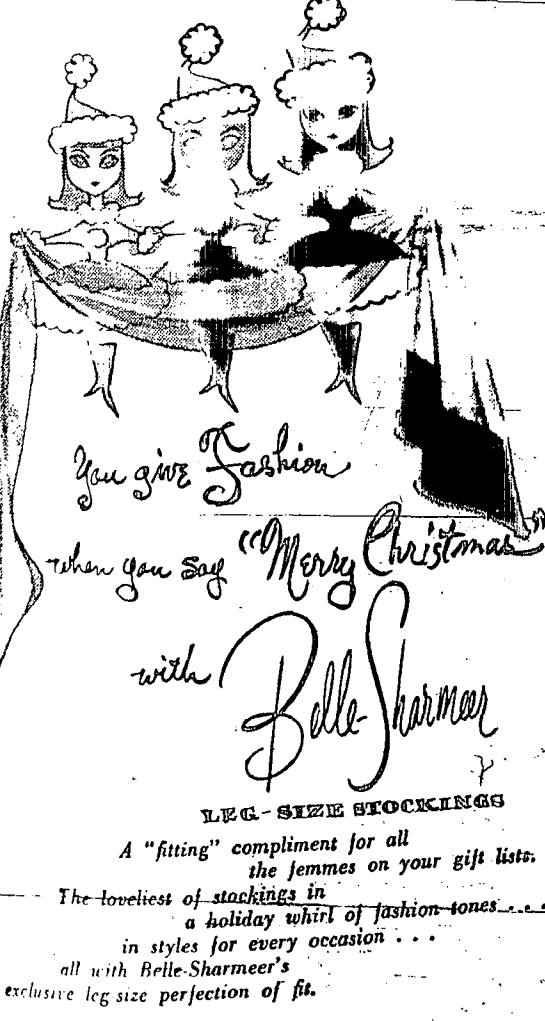 You give Fashion
when you say "Merry Christmas"
with Belle-Sharmeer
LEG-SIZE STOCKINGS
A "fitting" compliment for all
the femmes on your gift lists.
The loveliest of stockings in
a holiday whirl of fashion tones . . .
in styles for every occasion . . .
all with Belle-Sharmeer's
exclusive leg size perfection of fit.